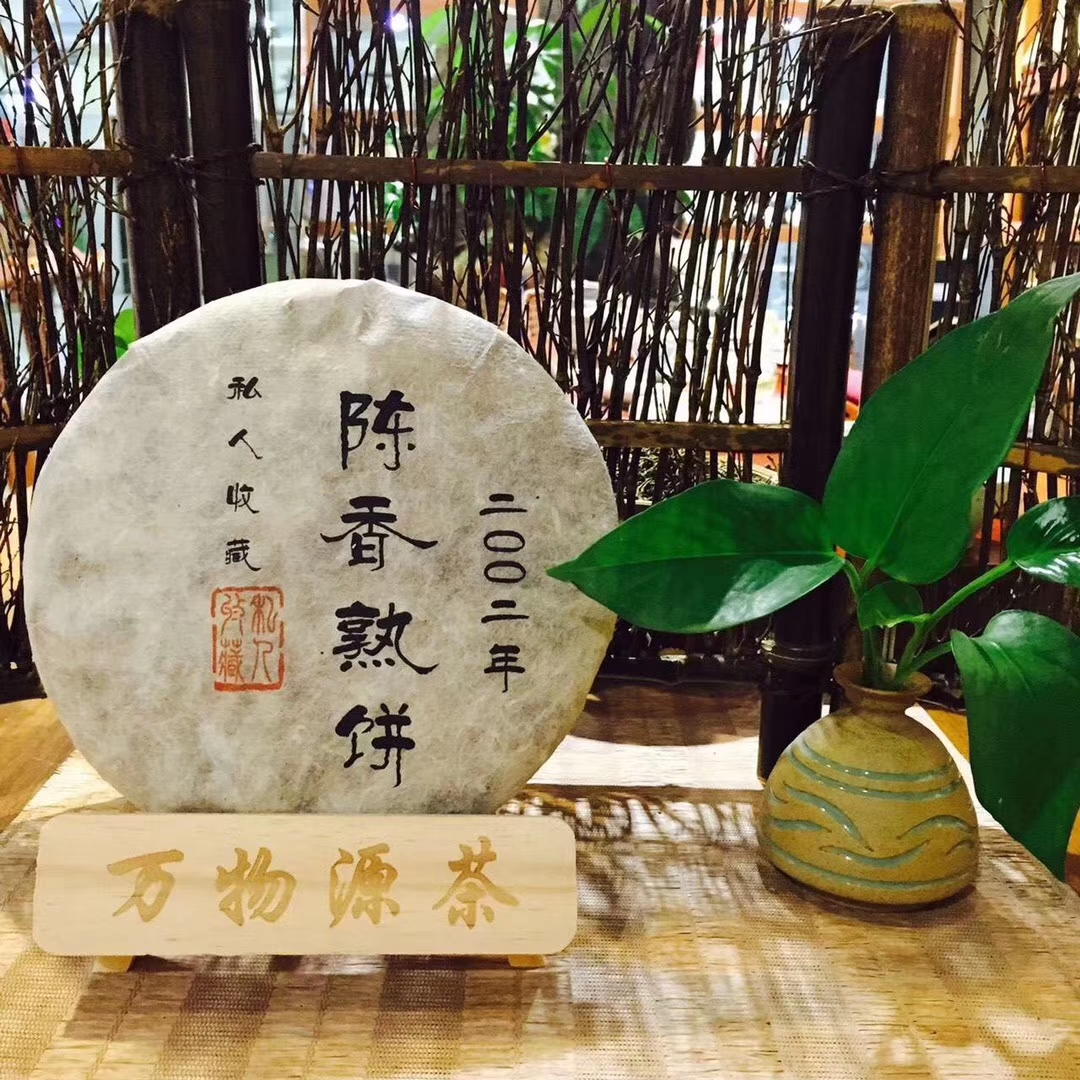 二〇〇二年
陈香熟饼
私人收藏
私人
收藏
万物源茶